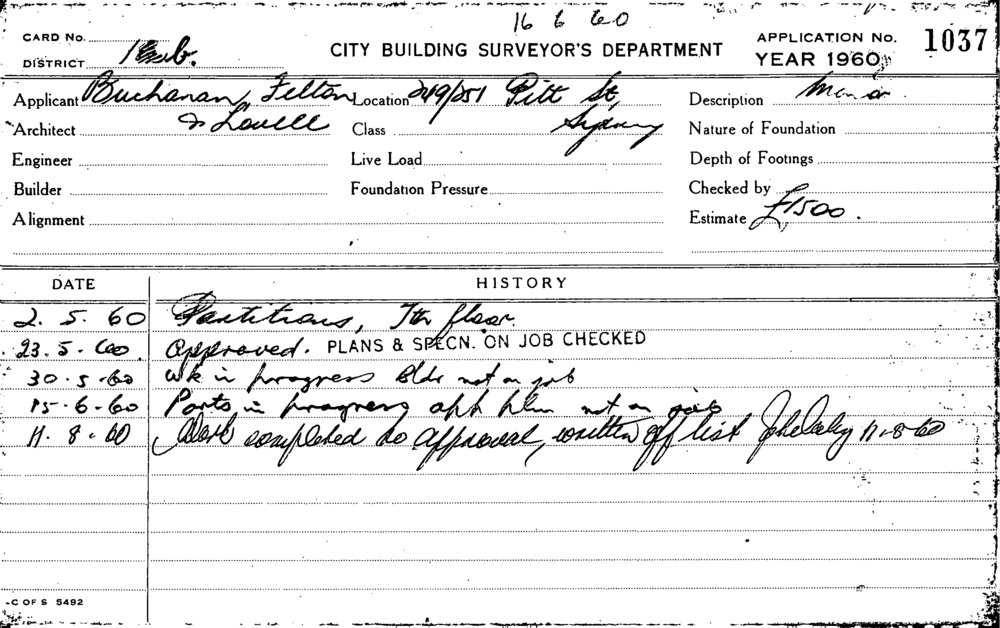 16 6 60
CARD No.
CITY BUILDING SURVEYOR'S DEPARTMENT
APPLICATION No. 1037
DISTRICT
YEAR 1960
Applicant Buchanan, Felton Location 249/251 Pitt St, Description
Architect & Lovell Class Sydney Nature of Foundation
Engineer Live Load Depth of Footings
Builder Foundation Pressure Checked by
Alignment Estimate £1500.
DATE HISTORY
2. 5. 60 Partitions, 7th floor.
23. 5. 60 Approved. PLANS & SPECN. ON JOB CHECKED
30-5-60 Wk in progress Bldr not on job
15-6-60 Parts in progress not on job
11. 8. 60 Work completed to approval, written off list 11-8-60
-C OF S 5492